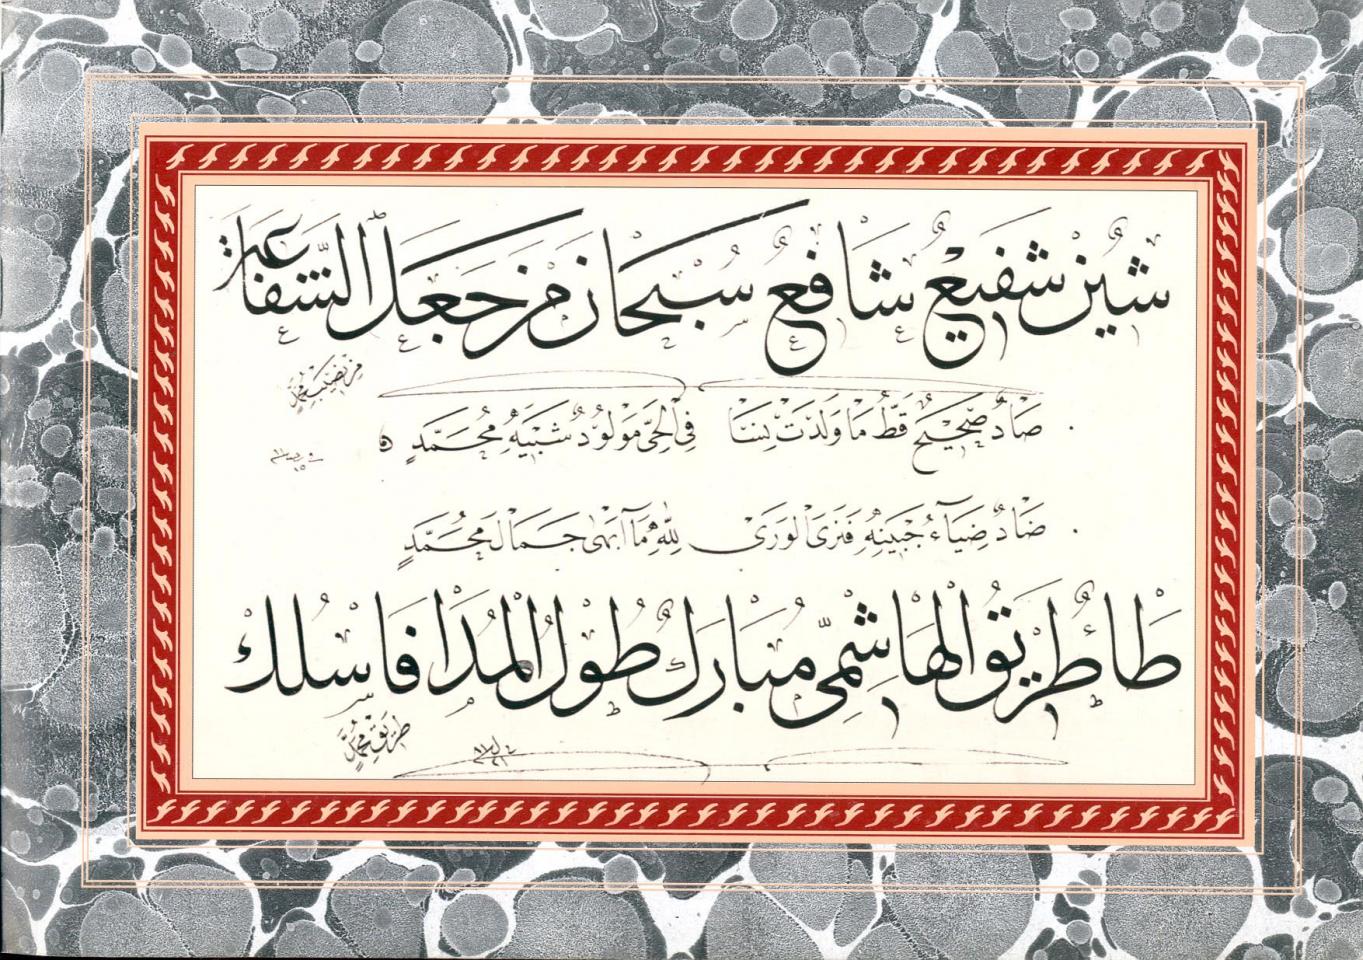 شين شفيع شافع سبحان من جعل الشفاعة
من نصيب محمد
صاد صحيح قط ما ولدت لنا في الحي مولود شبيه محمد
ضاد ضياء جبينه فتزى الورى لله ما أبهى جمال محمد
طاء طريق الهاشمي مبارك طول المدا فاسلك
طريق محمد